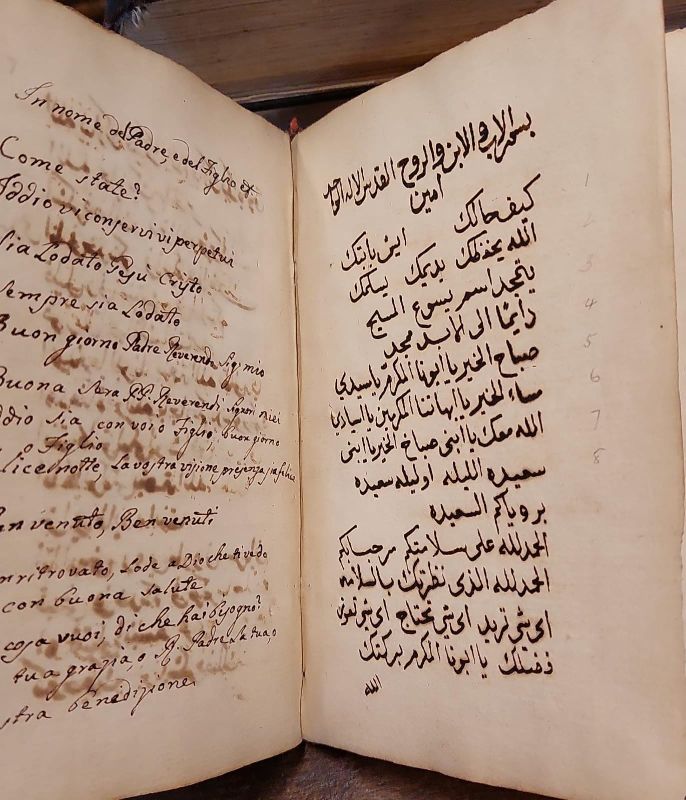 In nome del Padre, e del Figlio et
Come state?
Iddio vi conservi vi perpetui
Sia Lodato Gesù Cristo
Sempre sia Lodato
Buon giorno Padre Reverendi Sig. mio
Buona sera PP. Reverendi Signori miei
Iddio sia con voi o Figlio, buon giorno
o Figlio
felice notte, la vostra visione, presenza sia felice
Ben venuto, Ben venuti
ben ritrovato, Lode a Dio che ti vedo
con buona salute
cosa vuoi, di che hai bisogno?
tua grazia, o R. Padre la tua, o
vostra benedizione
بسم الاب والابن والروح القدس الاله الواحد
امين
كيف حالك ايش بابتك
الله يحفظك يديمك يسلمك
يتمجد اسم يسوع المسيح
دايمًا الى الابد مجد
صباح الخير يا ابونا المكرم يا سيدي
مساء الخير يا ابهاتنا المكرمين يا اسيادي
الله معك يا ابنى صباح الخير يا ابنى
سعيده الليله او ليله سعيده
برؤياكم السعيده
الحمد لله على سلامتكم مرحبا بكم
الحمد لله الذى نظرتك بالسلامه
اى شى تريد اى شى تحتاج اى شى تعوز
فضلك يا ابونا المكرم بركتك
الله
1
2
3
4
5
6
7
8